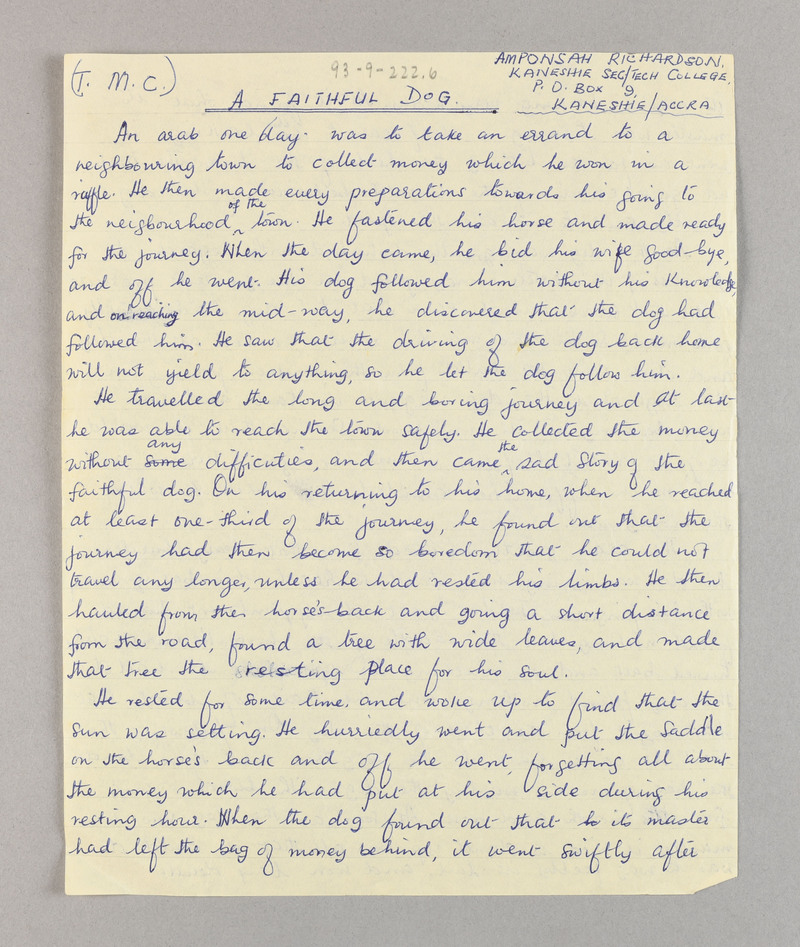 (T. M. C.)
93-9-222.6
AMPONSAH RICHARDSON.
KANESHIE SEC/TECH COLLEGE,
P. O. BOX 9,
KANESHIE/ACCRA
A FAITHFUL DOG.
An arab one day was to take an errand to a
neighbouring town to collect money which he won in a
raffle. He then made every preparations towards his going to
the neigbourhood of the town. He fastened his horse and made ready
for the journey. When the day came, he bid his wife good-bye,
and off he went. His dog followed him without his knowledge,
and on reaching the mid-way, he discovered that the dog had
followed him. He saw that the driving of the dog back home
will not yield to anything, so he let the dog follow him.
He travelled the long and boring journey and at last
he was able to reach the town safely. He collected the money
without some any difficuties, and then came the sad story of the
faithful dog. On his returning to his home, when he reached
at least one-third of the journey, he found out that the
journey had then become so boredom that he could not
travel any longer, unless he had rested his limbs. He then
hauled from the horse's-back and going a short distance
from the road, found a tree with wide leaves, and made
that tree the resting place for his soul.
He rested for some time, and woke up to find that the
sun was setting. He hurriedly went and put the saddle
on the horse's back and off he went, forgetting all about
the money which he had put at his side during his
resting hour. When the dog found out that its master
had left the bag of money behind, it went swiftly after